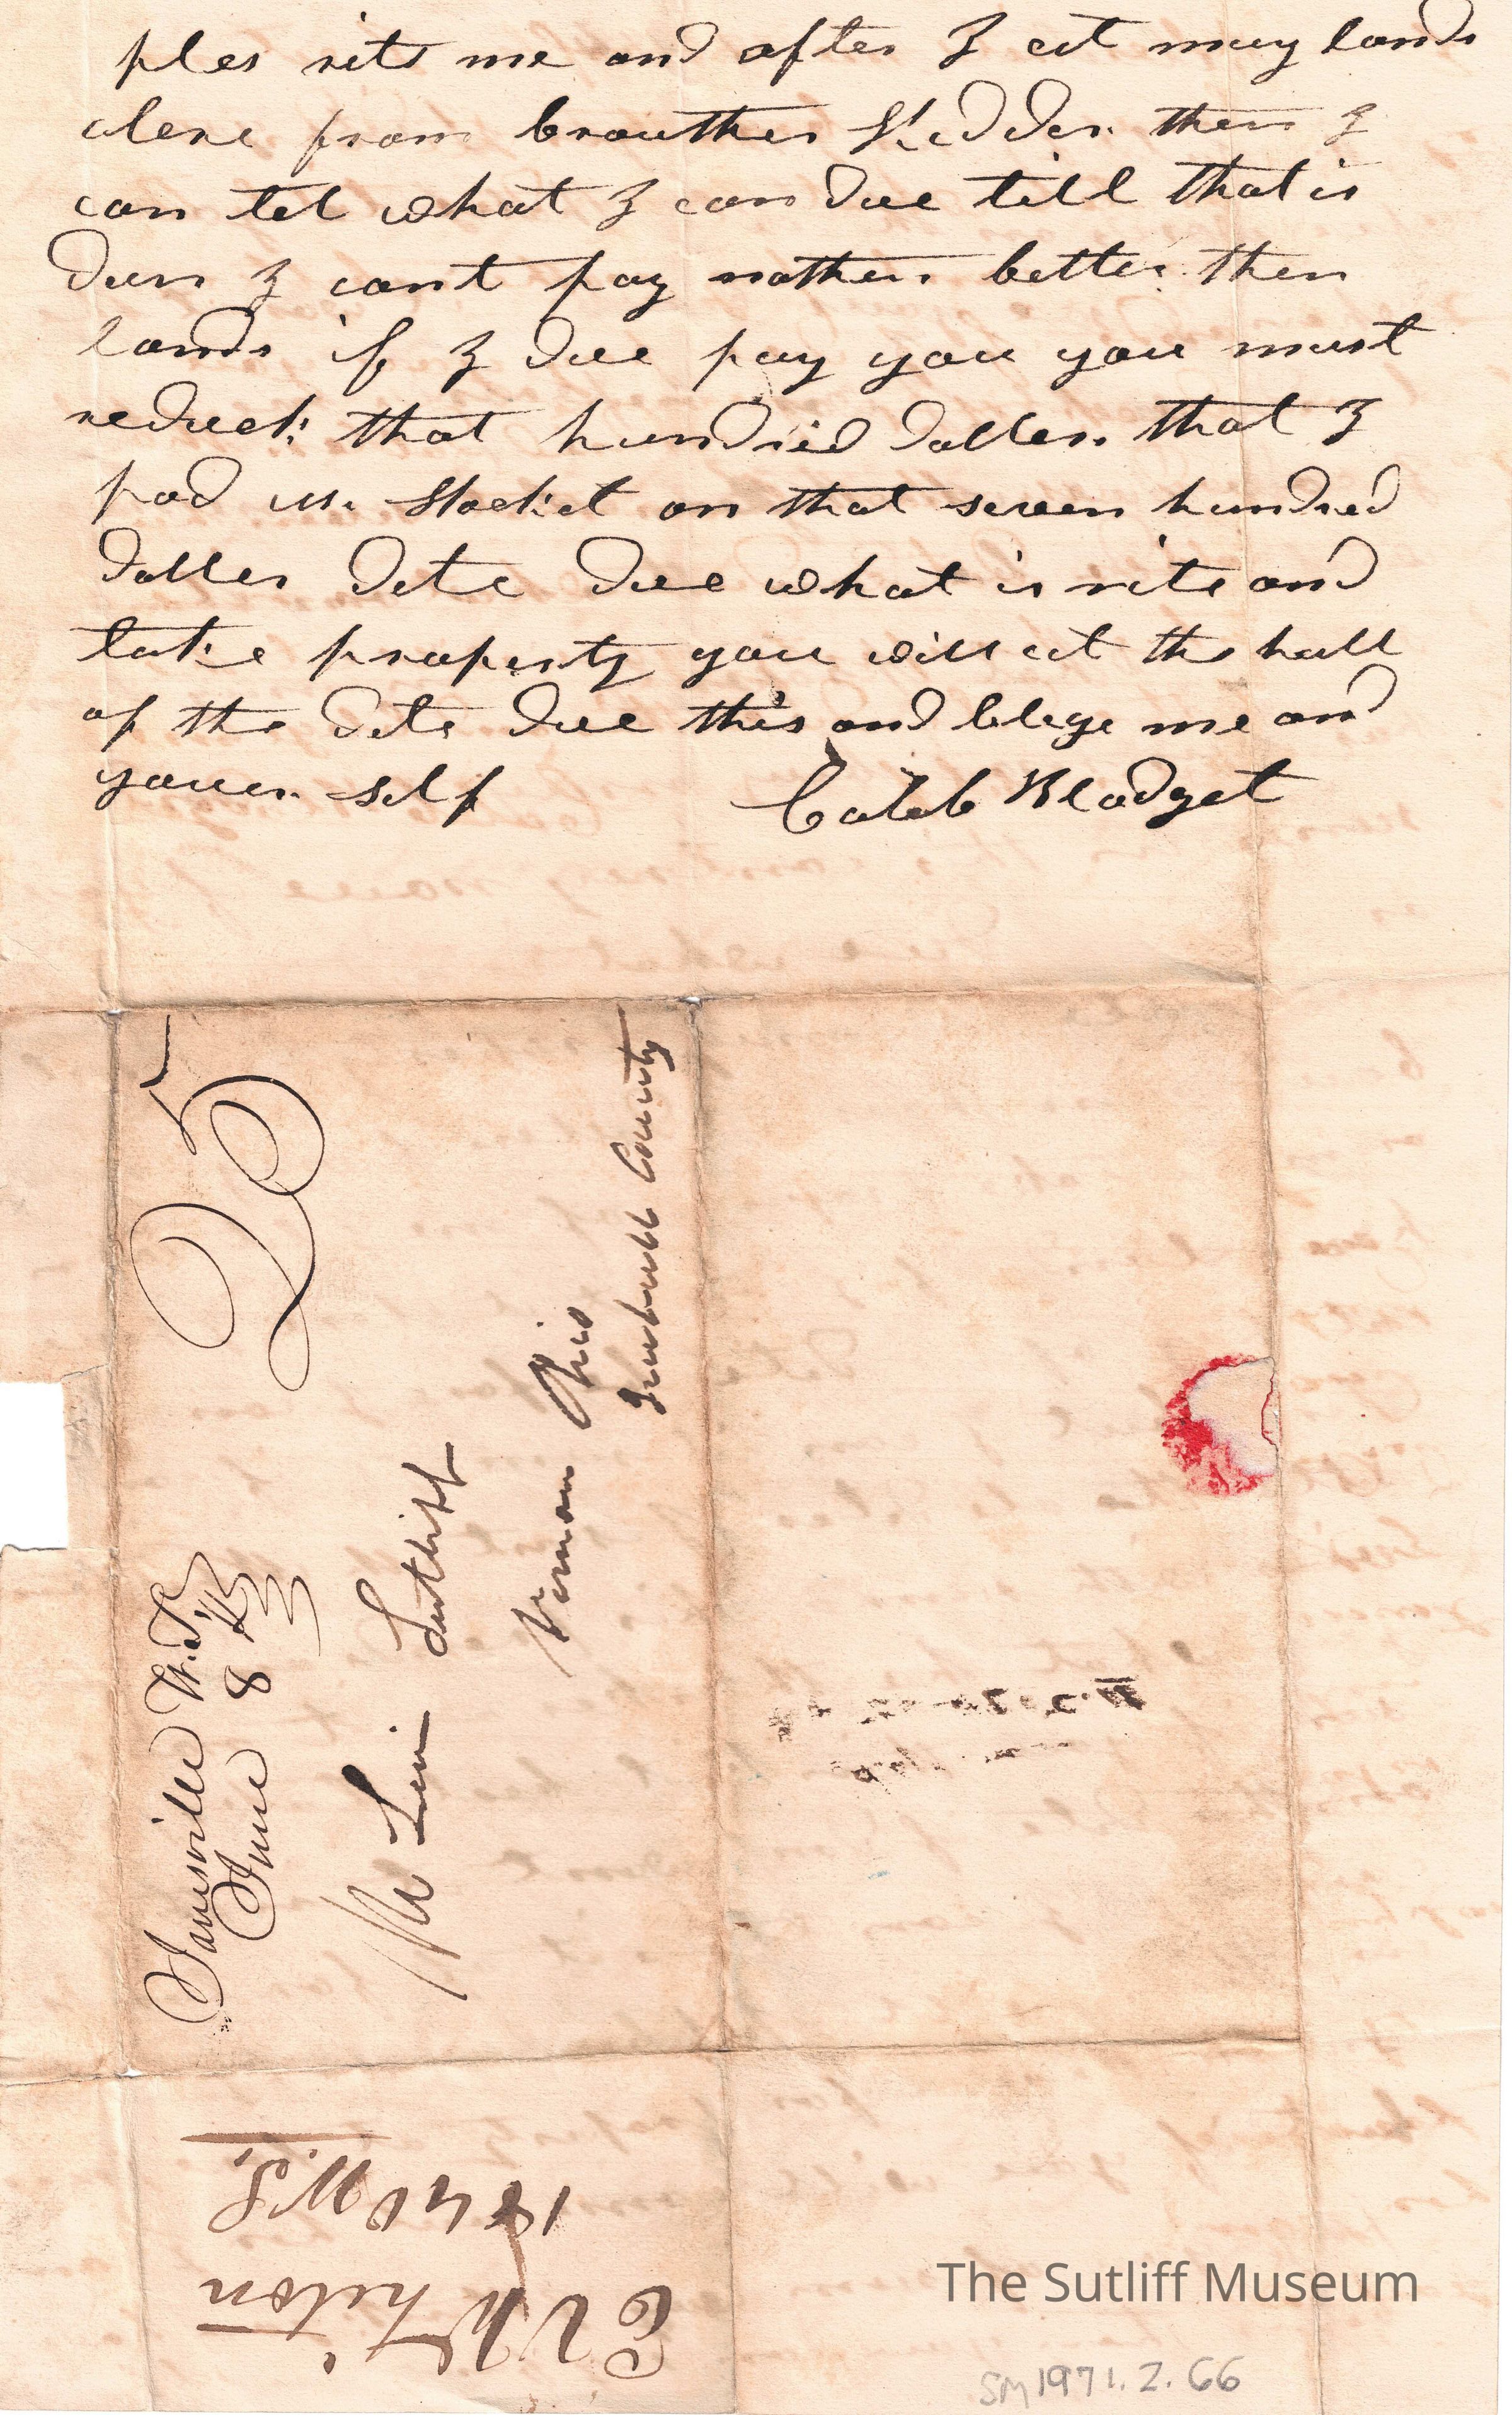 ples rite me and after I git my lands
clere from brouther Kidder then I
can tel what I can due till that is
dun I cant pay nothen better then
lands if I due pay you you must
reduck that hundrid doller that I
pad Mr Stocket on that seven hundred
doller dete due what is rite and
take property you will git the hall
of the dete due this and blege me and
your self Caleb Blodget
25
Janesville W.T.
June 8
Mr Levi Sutliff
Vernon Ohio
Trumbull County
1840 M.S.
The Sutliff Museum
SM1971.2.66